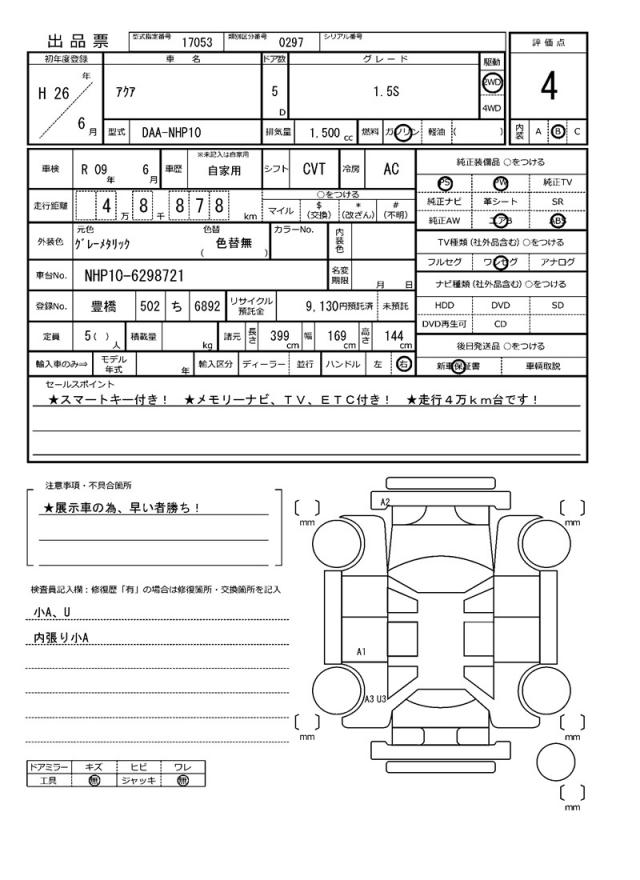 出品票
型式指定番号 17053 類別区分番号 0297 シリアル番号
評価点
4
内装 A B C
初年度登録 車名 ドア数 グレード 駆動
H 26 年 6 月
アクア 5 D 1.5S 2WD 4WD
型式 DAA-NHP10 排気量 1.500 cc 燃料 ガソリン 軽油 ( )
車検 R 09 年 6 月 車歴 ※未記入は自家用 自家用 シフト CVT 冷房 AC
走行距離 4 万 8 千 8 7 8 km ○をつける
マイル $ (交換) * (改ざん) # (不明)
外装色 元色 グレーメタリック 色替 ( 色替無 ) カラーNo. 内装色
車台No. NHP10-6298721 名変期限 月 日
登録No. 豊橋 502 ち 6892 リサイクル預託金 9,130円預託済 未預託
定員 5 ( ) 人 積載量 kg 諸元 長さ 399 cm 幅 169 cm 高さ 144 cm
輸入車のみ⇒ モデル年式 年 輸入区分 ディーラー 並行 ハンドル 左 右
純正装備品 ○をつける
PS PW 純正TV
純正ナビ 革シート SR
純正AW エアB ABS
TV種類 (社外品含む) ○をつける
フルセグ ワンセグ アナログ
ナビ種類 (社外品含む) ○をつける
HDD DVD SD
DVD再生可 CD
後日発送品 ○をつける
新車保証書 車輌取説
セールスポイント
★スマートキー付き! ★メモリーナビ、TV、ETC付き! ★走行4万km台です!
注意事項・不具合箇所
★展示車の為、早い者勝ち!
検査員記入欄：修復歴「有」の場合は修復箇所・交換箇所を記入
小A、U
内張り小A
ドアミラー キズ ヒビ ワレ
工具 無 ジャッキ 無
A2
[ ] mm
[ ] mm
A1
A3 U3
[ ] mm
[ ] mm
[ ] mm